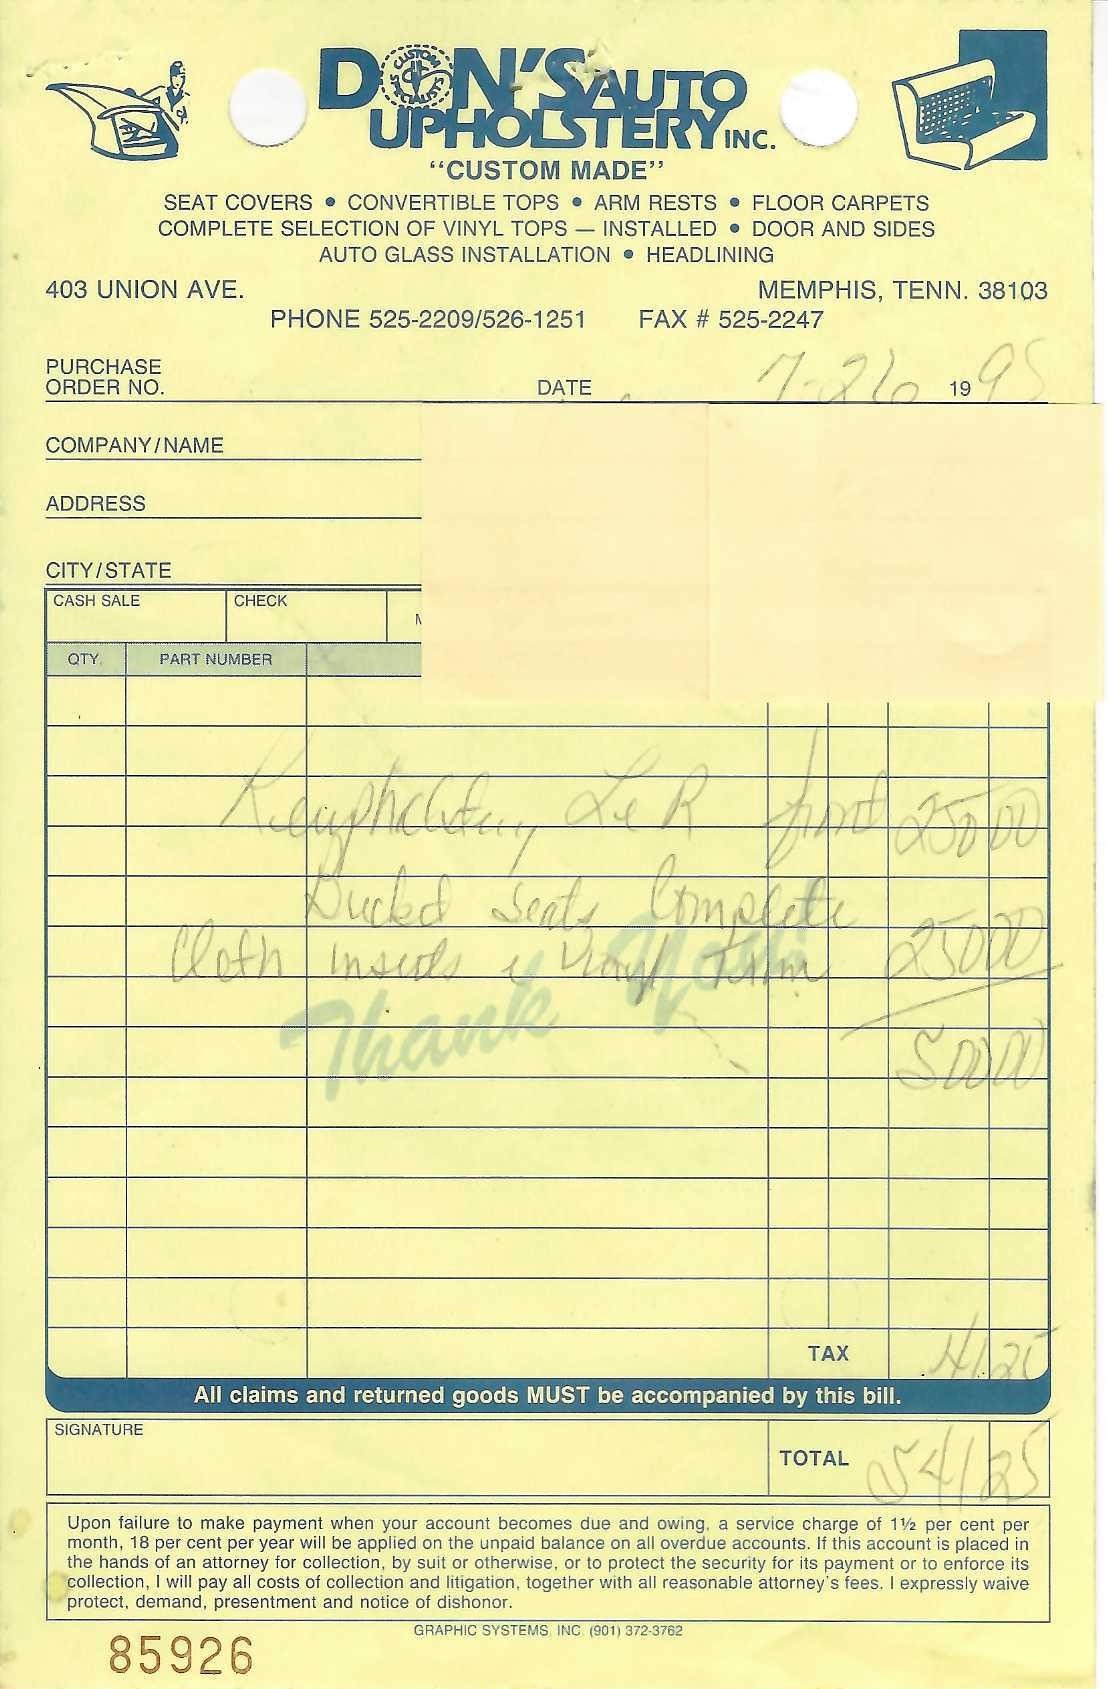 DON'S AUTO
UPHOLSTERY INC.
CUSTOM
SPECIALISTS
"CUSTOM MADE"
SEAT COVERS • CONVERTIBLE TOPS • ARM RESTS • FLOOR CARPETS
COMPLETE SELECTION OF VINYL TOPS — INSTALLED • DOOR AND SIDES
AUTO GLASS INSTALLATION • HEADLINING
403 UNION AVE. MEMPHIS, TENN. 38103
PHONE 525-2209/526-1251 FAX # 525-2247
PURCHASE
ORDER NO. DATE 7-26 1995
COMPANY/NAME
ADDRESS
CITY/STATE
CASH SALE CHECK
QTY. PART NUMBER
L & R front 250 00
Bucket Seats Complete
Cloth Inserts & Vinyl Trim 250 00
500 00
Thank You!
TAX 41 25
All claims and returned goods MUST be accompanied by this bill.
SIGNATURE
TOTAL 541 25
Upon failure to make payment when your account becomes due and owing, a service charge of 1½ per cent per
month, 18 per cent per year will be applied on the unpaid balance on all overdue accounts. If this account is placed in
the hands of an attorney for collection, by suit or otherwise, or to protect the security for its payment or to enforce its
collection, I will pay all costs of collection and litigation, together with all reasonable attorney's fees. I expressly waive
protect, demand, presentment and notice of dishonor.
GRAPHIC SYSTEMS, INC. (901) 372-3762
85926